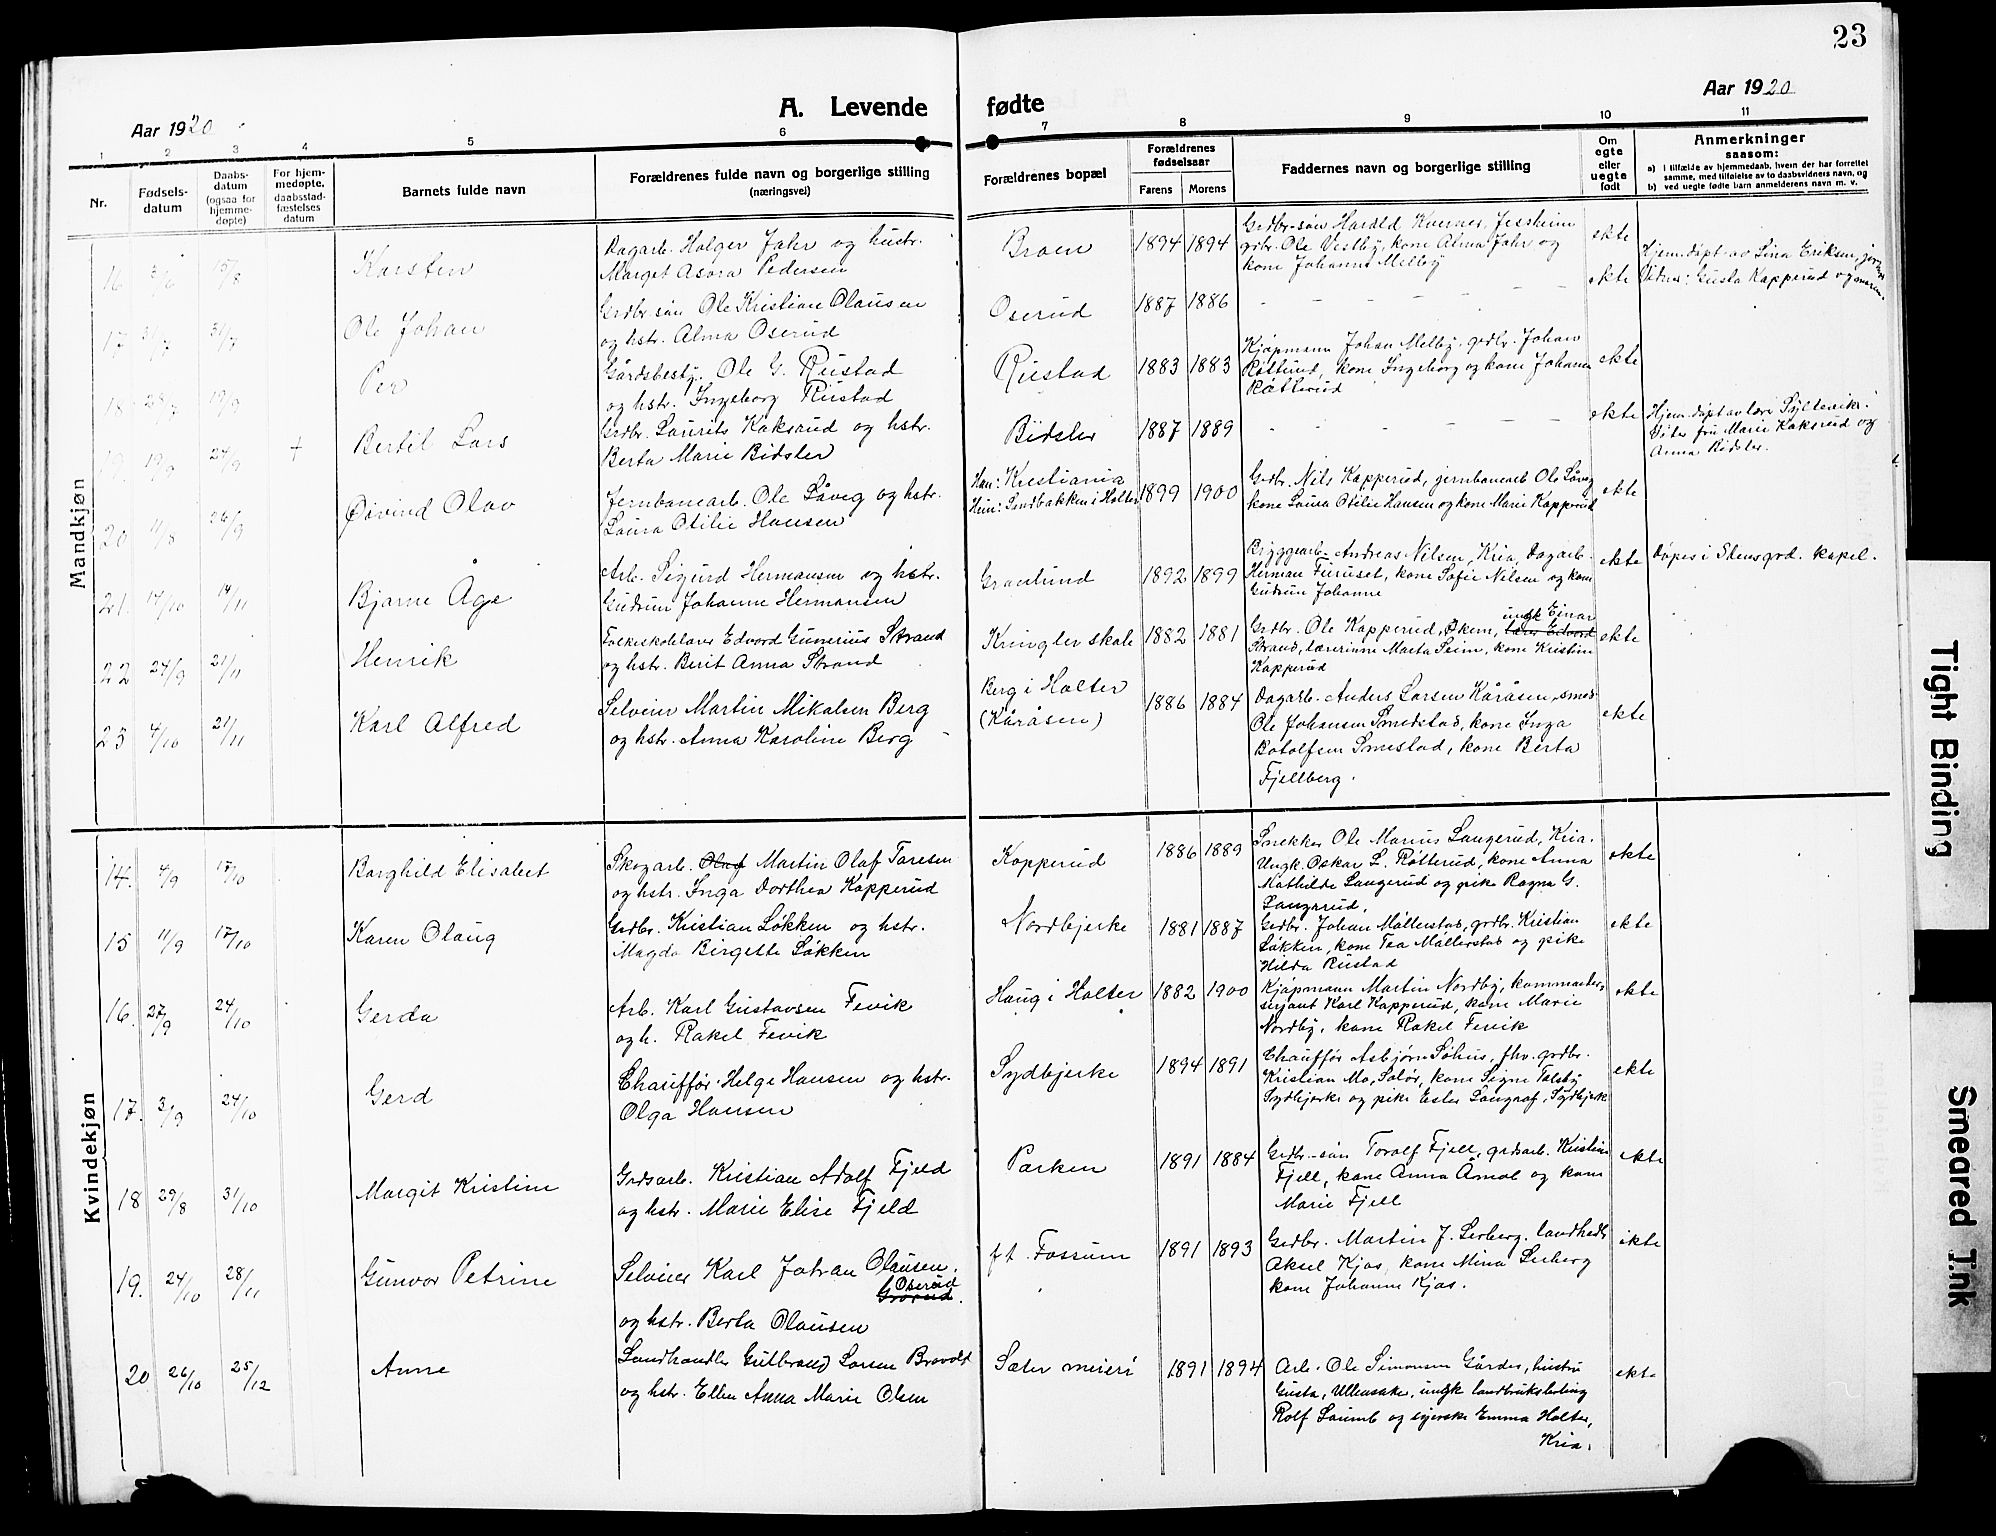 23
Aar 1920
A. Levende fødte
Aar 1920
1 2 3 4 5 6 7 8 9 10 11
Nr.
Fødsels-
datum
Daabs-
datum
(ogsaa for
hjemme-
døpte)
For hjem-
medøpte,
daabsstad-
fæstelses
datum
Barnets fulde navn
Forældrenes fulde navn og borgerlige stilling
(næringsvei)
Forældrenes bopæl
Forældrenes
fødselsaar
Farens Morens
Faddernes navn og borgerlige stilling
Om
egte
eller
uegte
født
Anmerkninger
saasom:
a) i tilfælde av hjemmedaab, hvem der har forrettet
samme, med tilføielse av to daabsvidners navn, og
b) ved uegte fødte barn anmelderens navn m. v.
Mandkjøn
16 15/8
Karsten
Dagarb. Holger Jahr og hustr.
Marget Asora Pedersen
Braen
1894 1894
Grdbr.søn Harald Kverner, Jessheim
grbr. Ole Vestby, kone Alma Jahr og
kone Johanne Melby
ekte
17 31/7 31/7
Ole Johan
Grdbr.søn Ole Kristian Olausen
og hstr. Alma Oserud
Oserud
1887 1886
- - - - - -
ekte
Hjem.døpt av Lina Eriksen,
Vidner: Gusta Kapperud og
18 19/9
Per
Gårdsbesty. Ole G. Rustad
og hstr. Ingeborg Rustad
Rustad
1883 1883
Kjøpmann Johan Melby, grdbr. Johan
Røtterud, kone Ingeborg og kone Johanne
Røtterud
ekte
19 19/9 24/9 +
Bertil Lars
Grdbr. Laurits Kaksrud og hstr.
Berta Marie Bidsler
Bidsler
1887 1889
- - - - - -
ekte
Hjem.døpt av
fru Marie Kaksrud og
Anna Bidsler.
20 11/8 26/9
Øivind Olav
Jernbanearb. Ole Låveg og hstr.
Laura Otilie Hansen
Han: Kristiania
Hun: Sandbakken i Holter
1899 1900
Grdbr. Nils Kapperud, jernbanearb Ole Låveg
kone Laura Otilie Hansen og kone Marie Kapperud
ekte
21. 14/10 14/11
Bjarne Åge
Arb. Sigurd Hermansen og hstr.
Gudrun Johanne Hermansen
Granlund
1892 1899
Bryggearb. Andreas Nilsen, Kria, Dagarb.
Herman Furuset, kone Sofie Nilsen og kone
Gudrun Johanne
ekte
Døpes i Stensgrd. kapel.
22 24/9 21/11
Henrik
Folkeskolelærer Edvord Gunerius Strand
og hstr. Berit Anna Strand
Kringler skole
1882 1881
Grdbr. Ole Kapperud, Økern, ungk Einar
lærer Edvord
Strand, lærerinne Marta Seim, kone Kristine
Kapperud
ekte
23 4/10 21/11
Karl Alfred
Selveier Martin Mikalsen Berg
og hstr. Anna Karoline Berg
Berg i Holter
(Kåråsen)
1886 1884
Dagarb. Anders Larsen Kåråsen, smed
Ole Johansen Smedstad, kone Inga
Botolfsen Smestad, kone Berta
Fjellberg.
ekte
Kvindekjøn
14. 4/9 17/10
Borghild Elisabet
Skogarb. Olaf Martin Olaf Toresen
og hstr. Inga Dorthea Kapperud
Kapperud
1886 1889
Snekker Ole Marius Laugerud, Kria.
Ungk. Oskar L. Røtterud, kone Anna
Mathilde Laugerud og pike Ragna G.
Laugerud.
ekte
15 11/9 17/10
Karen Olaug
Grdbr. Kristian Løkken og hstr.
Magda Birgette Løkken
Nordbjerke
1881 1887
Grdbr. Johan Møllerstad, grdbr. Kristian
Løkken, kone Tea Møllerstad og pike
Hilda Rustad
ekte
16. 27/9 24/10
Gerda
Arb. Karl Gustavsen Fevik
og h. Rakel Fevik
Haug i Holter
1882 1900
Kjøpmann Martin Nordby,
serjant Karl Kapperud, kone Marie
Nordby, kone Rakel Fevik
ekte
17. 3/9 24/10
Gerd
Chauffør Helge Hansen og hstr.
Olga Hansen
Sydbjerke
1894 1891
Chauffør Asbjørn Søhus, fhv. grdbr.
Kristian Mo, Solør, kone Signe Tølsby
Sydbjerke og pike Ester Langaas, Sydbjerke
ekte
18 29/8 31/10
Margit Kristine
Grdsarb. Kristian Adolf Fjeld
og hstr. Marie Elise Fjeld
Parken
1891 1884
Grdbr.-søn Toralf Fjell, grdsarb. Kristian
Fjell, kone Anna Årnol og kone
Marie Fjell
ekte
19. 24/10 28/11
Gunvor Petrine
Selveier Karl Johan Olausen.
Oserud
og hstr. Berta Olausen
f.t. Fossum
1891 1893
Grdbr. Martin J. Serberg, landhedr
Aksel Kjos, kone Mina Serberg
kone Johanne Kjos.
ekte
20 26/10 25/12
Anne
Landhandler Gulbrand Larsen Bravold
og hstr. Ellen Anna Marie Olsen
Sæter meieri
1891 1894
Arb. Ole Simonsen Gårder, hustru
Gusta, Ullensaker, ungk landbrukslærling
Rolf Laumb og syerske Emma Holter,
Kria.
ekte
Tight Binding
Smeared Ink